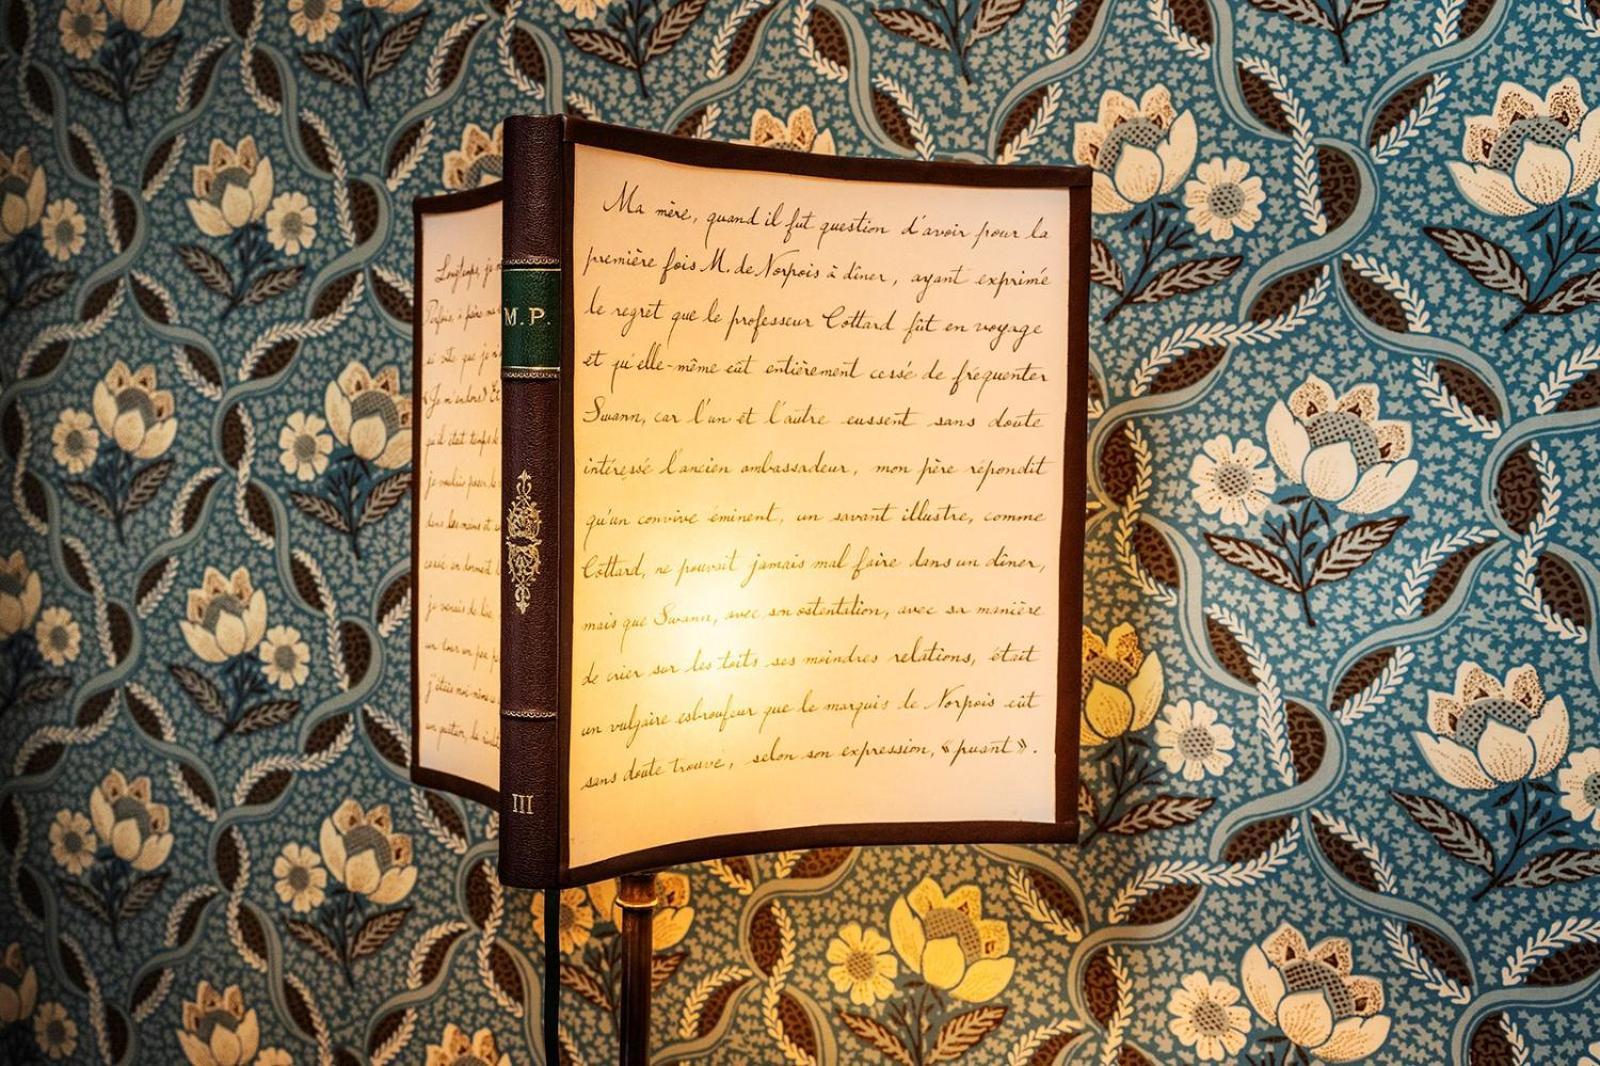 Longtemps, je
Parfois, à peine ma
si vite que je n
«Je m'endors» Et
qu'il était temps de
je voulais poser le
dans les mains et
cessé en dormant
je venais de lire
un tour un peu p
j'étais moi-même
un quatuor, la
M.P.
III
Ma mère, quand il fut question d'avoir pour la
première fois M. de Norpois à dîner, ayant exprimé
le regret que le professeur Cottard fût en voyage
et qu'elle-même eût entièrement cesse de fréquenter
Swann, car l'un et l'autre eussent sans doute
intéressé l'ancien ambassadeur, mon père répondit
qu'un convive éminent, un savant illustre, comme
Cottard, ne pouvait jamais mal faire dans un dîner,
mais que Swann, avec son ostentation, avec sa manière
de crier sur les toits ses moindres relations, était
un vulgaire esbroufeur que le marquis de Norpois eût
sans doute trouvé, selon son expression, «puant».